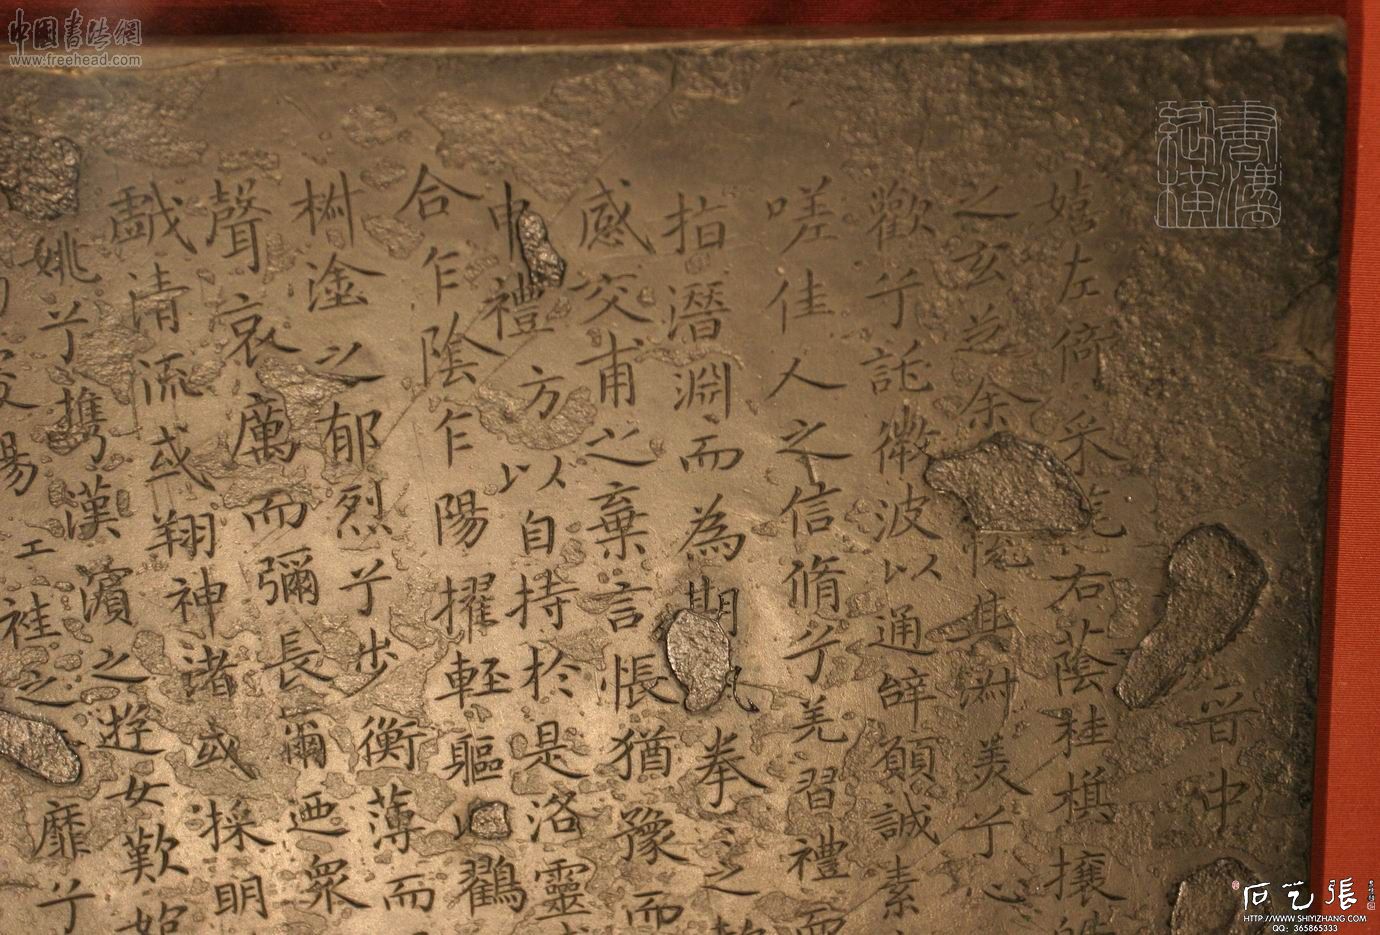 中國書法網
www.freehead.com
書法縱橫
晉中
嬉左倚采旄右蔭桂旗攘皓
之玄芝余情悅其淑美兮心
歡兮託微波以通辭願誠素
嗟佳人之信脩兮羌習禮而
指潛淵而為期執拳之款
感交甫之棄言悵猶豫而
申禮方以自持於是洛靈感
合乍陰乍陽擢輕軀以鶴
樹塗之郁烈兮步衡薄而
聲哀厲而彌長爾迺眾
戲清流或翔神渚或採明
姚兮攜漢濱之遊女歎匏
褂之靡兮
張艺石
HTTP://WWW.SHIYIZHANG.COM
QQ: 365865333